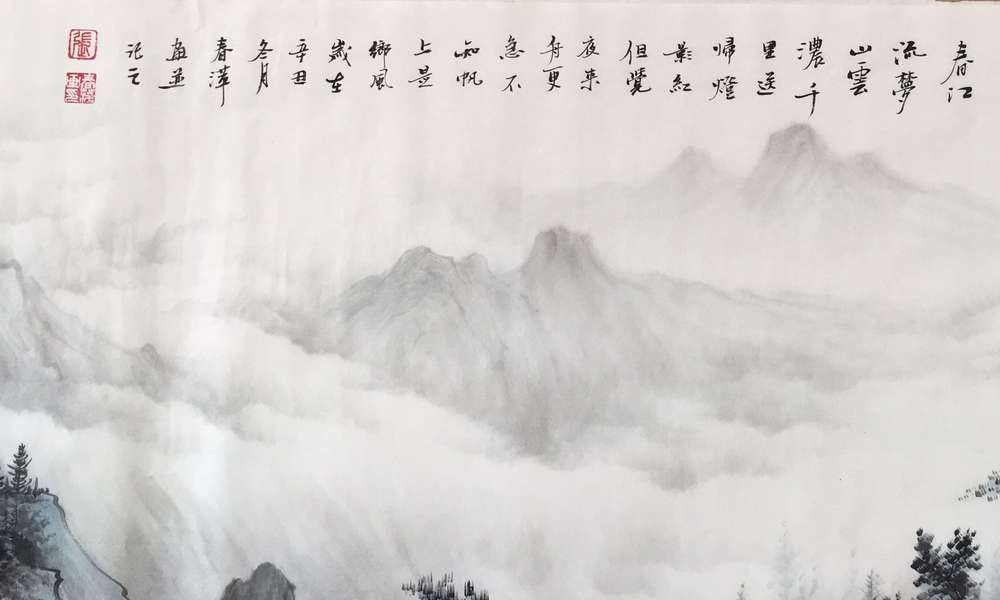 春江
流夢
山雲
濃千
里送
歸燈
影紅
但覺
夜来
舟更
急不
知帆
上是
鄉風
歲在
辛丑
冬月
春萍
畫並
记之
張